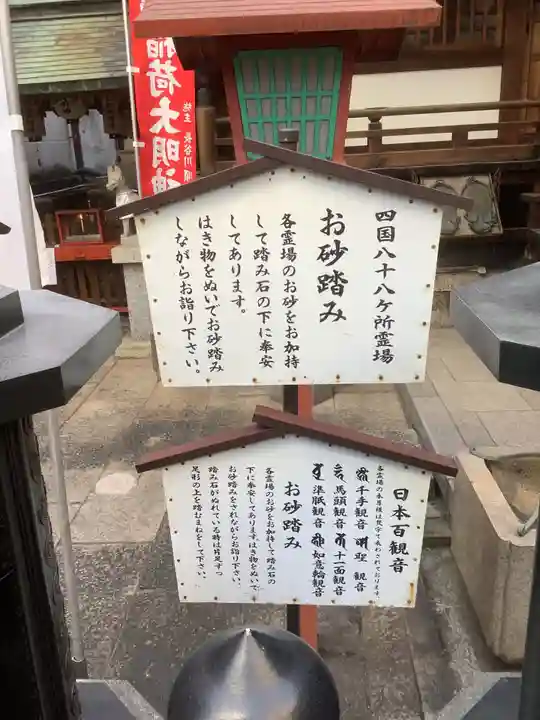 稲荷大明神
施主 長谷川
四国八十八ケ所霊場
お砂踏み
各霊場のお砂をお加持
して踏み石の下に奉安
してあります。
はき物をぬいでお砂踏み
しながらお詣り下さい。
日本百観音
各霊場の本尊様は梵字で表わされております。
千手観音 聖観音
馬頭観音 十一面観音
準胝観音 如意輪観音
お砂踏み
各霊場のお砂をお加持して踏み石の
下に奉安してあります。はき物をぬいで
お砂踏みをされながらお詣り下さい。
踏み石がぬれている時は片足ずつ
足形の上を踏むまねをして下さい。